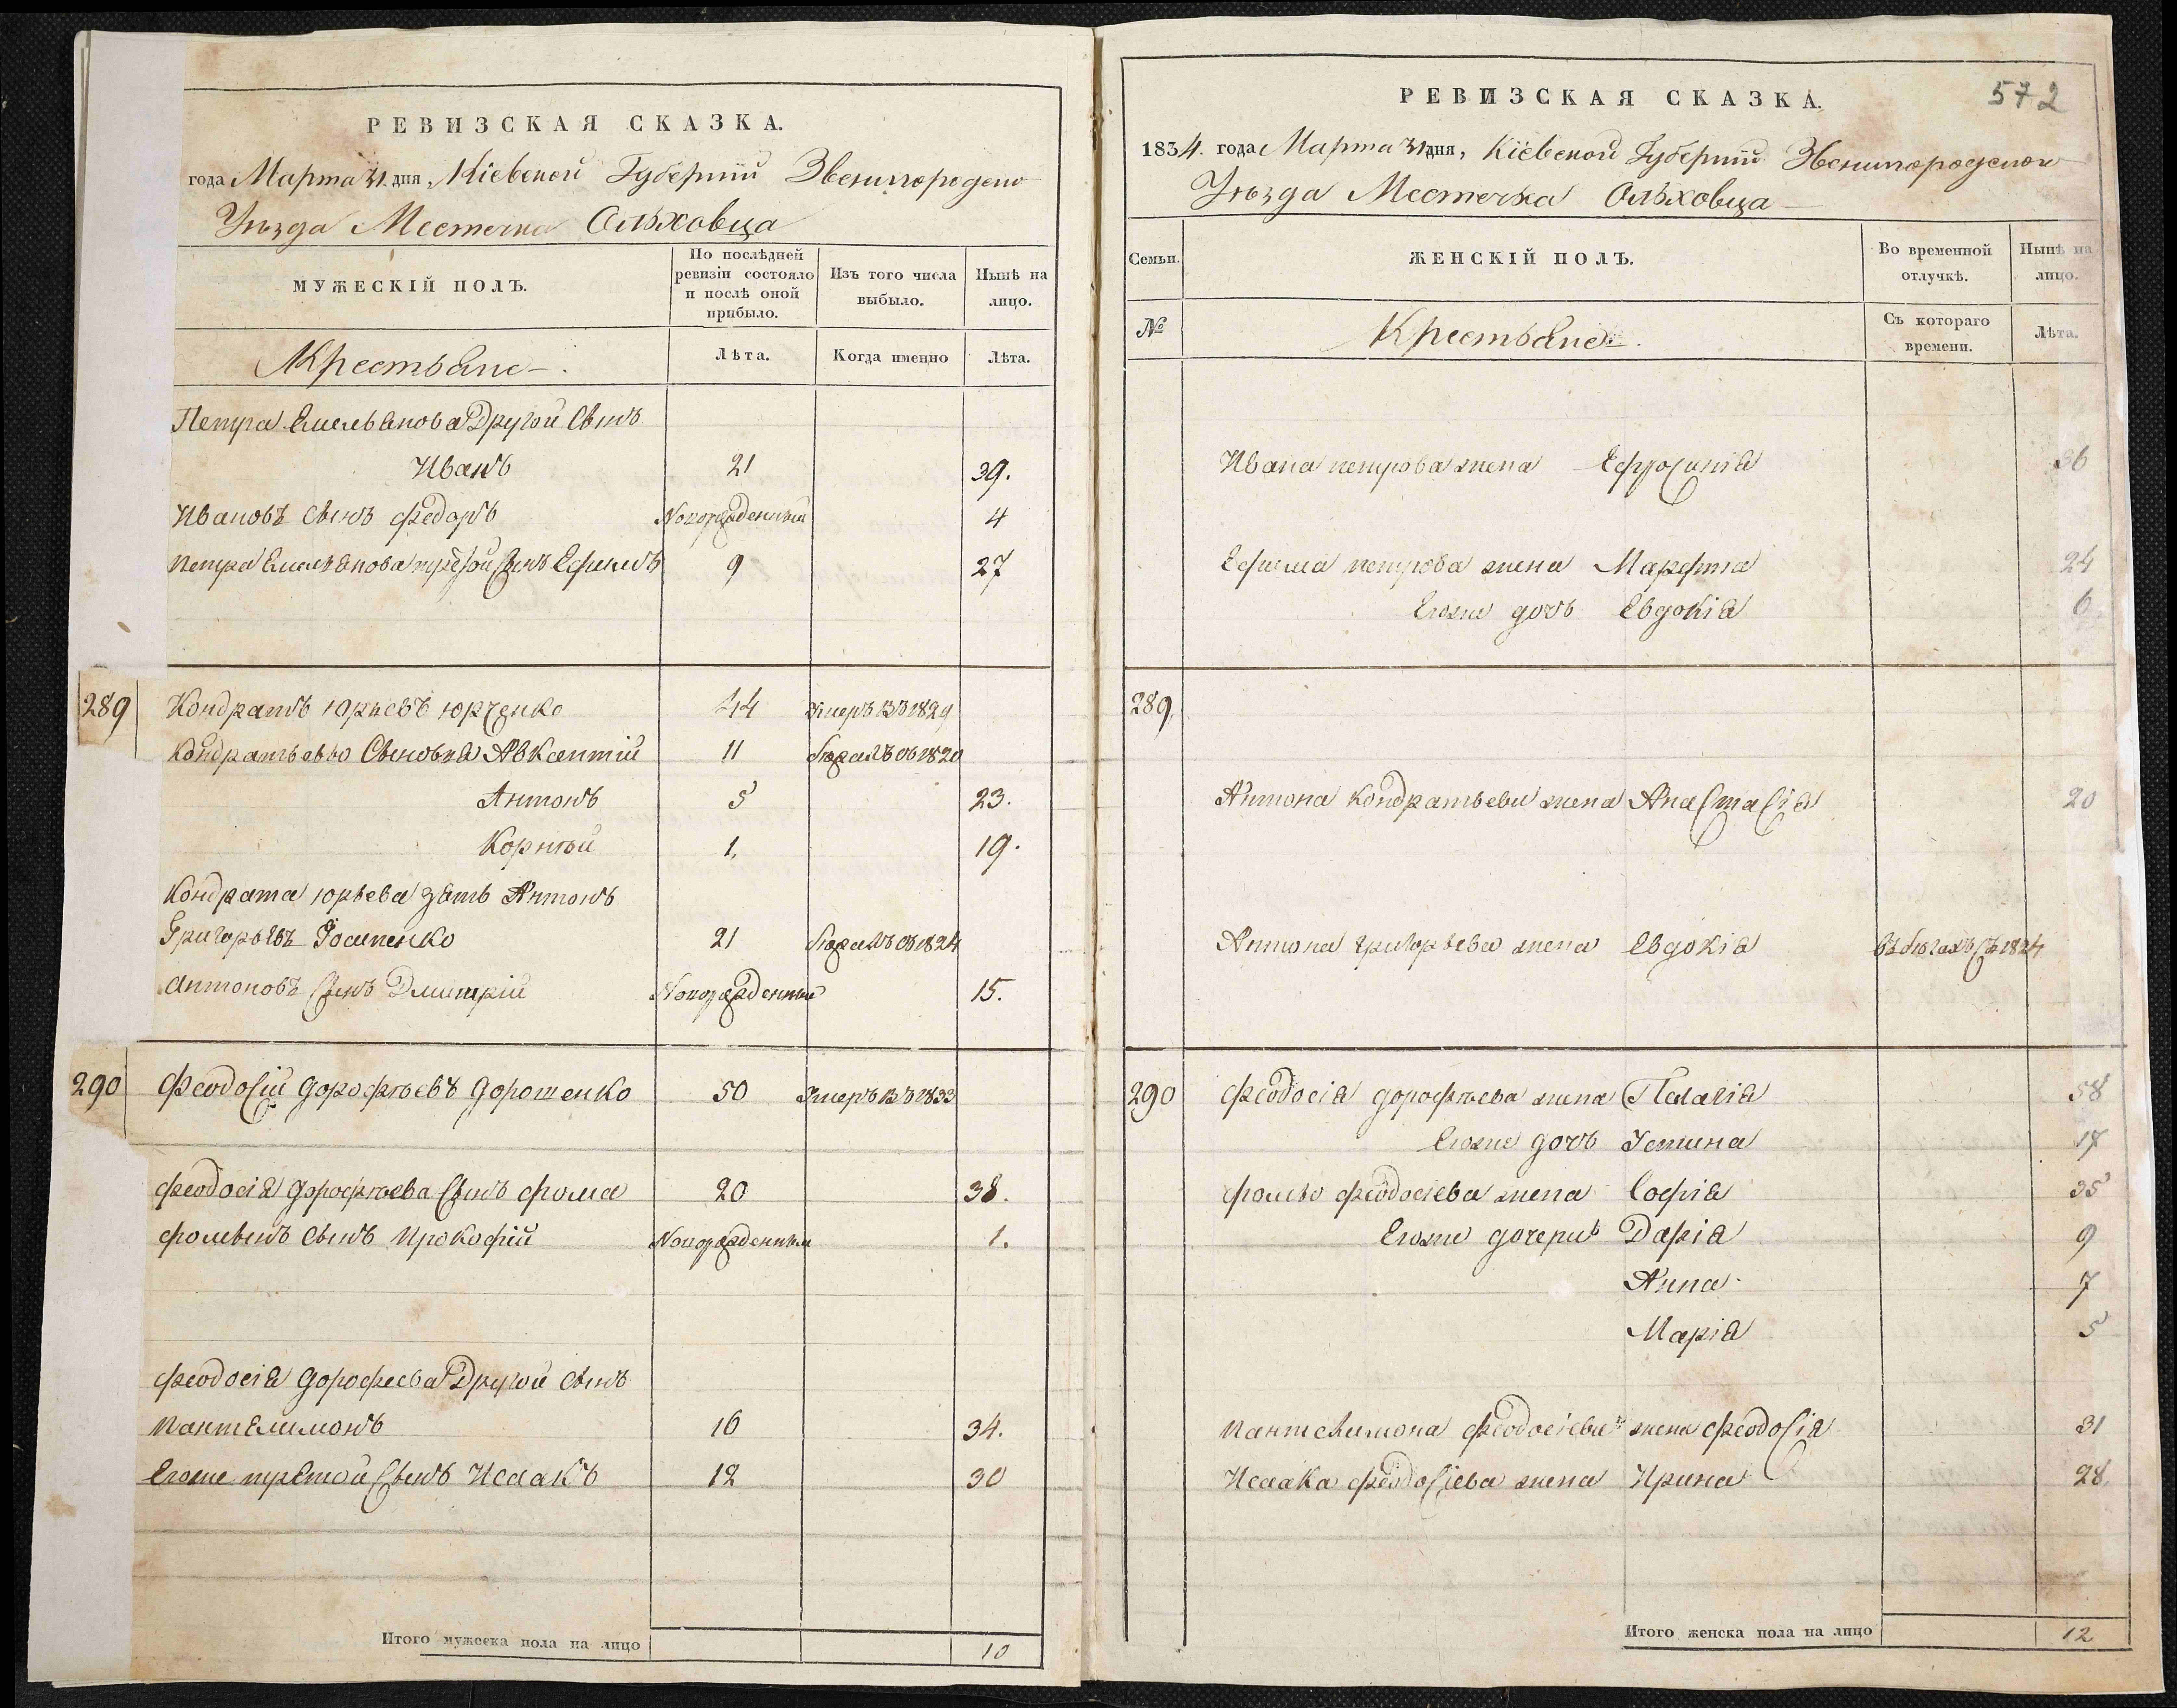 РЕВИЗСКАЯ СКАЗКА.
года Марта 31 дня, Кіевской Губерніи Звенигородско
Уѣзда Местечка Ольховца
МУЖЕСКІЙ ПОЛЪ.
По послѣдней ревизіи состояло и послѣ оной прибыло.
Изъ того числа выбыло.
Нынѣ на лицо.
Крестьяне
Лѣта.
Когда именно
Лѣта.
Петра Емельянова Другой Сынъ
Иванъ 21 39.
Ивановъ Сынъ Федоръ Новорожденный 4
Петра Емельянова третой Сынъ Ефимъ 9 27
289 Кондратъ Юрьевъ Юрченко 44 Умеръ въ 1829
Кондратьевы Сыновья Авксентій 11 бѣжалъ въ 1820
Антонъ 5 23.
Корнѣй 1, 19.
Кондрата Юрьева зять Антонъ
Григорьевъ Іосипенко 21 бѣжалъ въ 1824
Антоновъ Сынъ Дмитрій Новорожденный 15.
290 Феодосій Дорофѣевъ Дорошенко 50 Умеръ въ 1833
Феодосія Дорофѣева Сынъ Фома 20 38.
Фомынъ Сынъ Прокофій Новорожденный 1.
Феодосія Дорофеева Другой Сынъ
Пантелимонъ 16 34.
Егоже третой Сынъ Исаакъ 12 30
Итого мужеска пола на лицо 10
572
РЕВИЗСКАЯ СКАЗКА.
1834. года Марта 31 дня, Кіевской Губерніи Звенигородской
Уѣзда Местечка Ольховца
Семьи.
ЖЕНСКІЙ ПОЛЪ.
Во временной отлучкѣ.
Нынѣ на лицо.
№
Крестьяне
Съ котораго времени.
Лѣта.
Ивана Петрова жена Ефросинія 36
Ефима Петрова жена Марфта 24
Егоже дочь Евдокія 6
289
Антона Кондратьева жена Анастасія 20
Антона Григорьева жена Евдокія въ бѣгахъ съ 1824
290 Феодосія Дорофѣева жена Пелагія 58
Егоже дочь Устина 17
Фомы Феодосіева жена Софія 35
Егоже дочери Дарія 9
Анна 7
Марія 5
Пантелимона Феодосіева жена Феодосія 31
Исаака Феодосіева жена Ирина 28
Итого женска пола на лицо 12